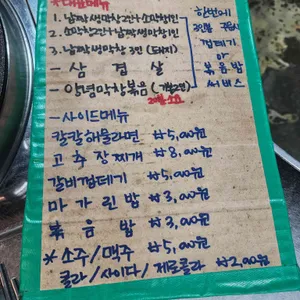 *대표메뉴
1. 납작생막창2인+소막창1인
2. 소막창2인+납작생막창1인
3. 납작생막창 3인 (돼지)
- 삼겹살
- 양념막창볶음
한번에
3인분 주문시
껍데기
or
볶음밥
써비스
- 사이드메뉴
칼칼해물라면 ₩5,000원
고추장찌개 ₩8,000원
갈비껍데기 ₩5,000원
마가린밥 ₩3,000원
볶음밥 ₩3,000원
*소주/맥주 ₩5,000원
콜라/사이다/제로콜라 ₩2,000원